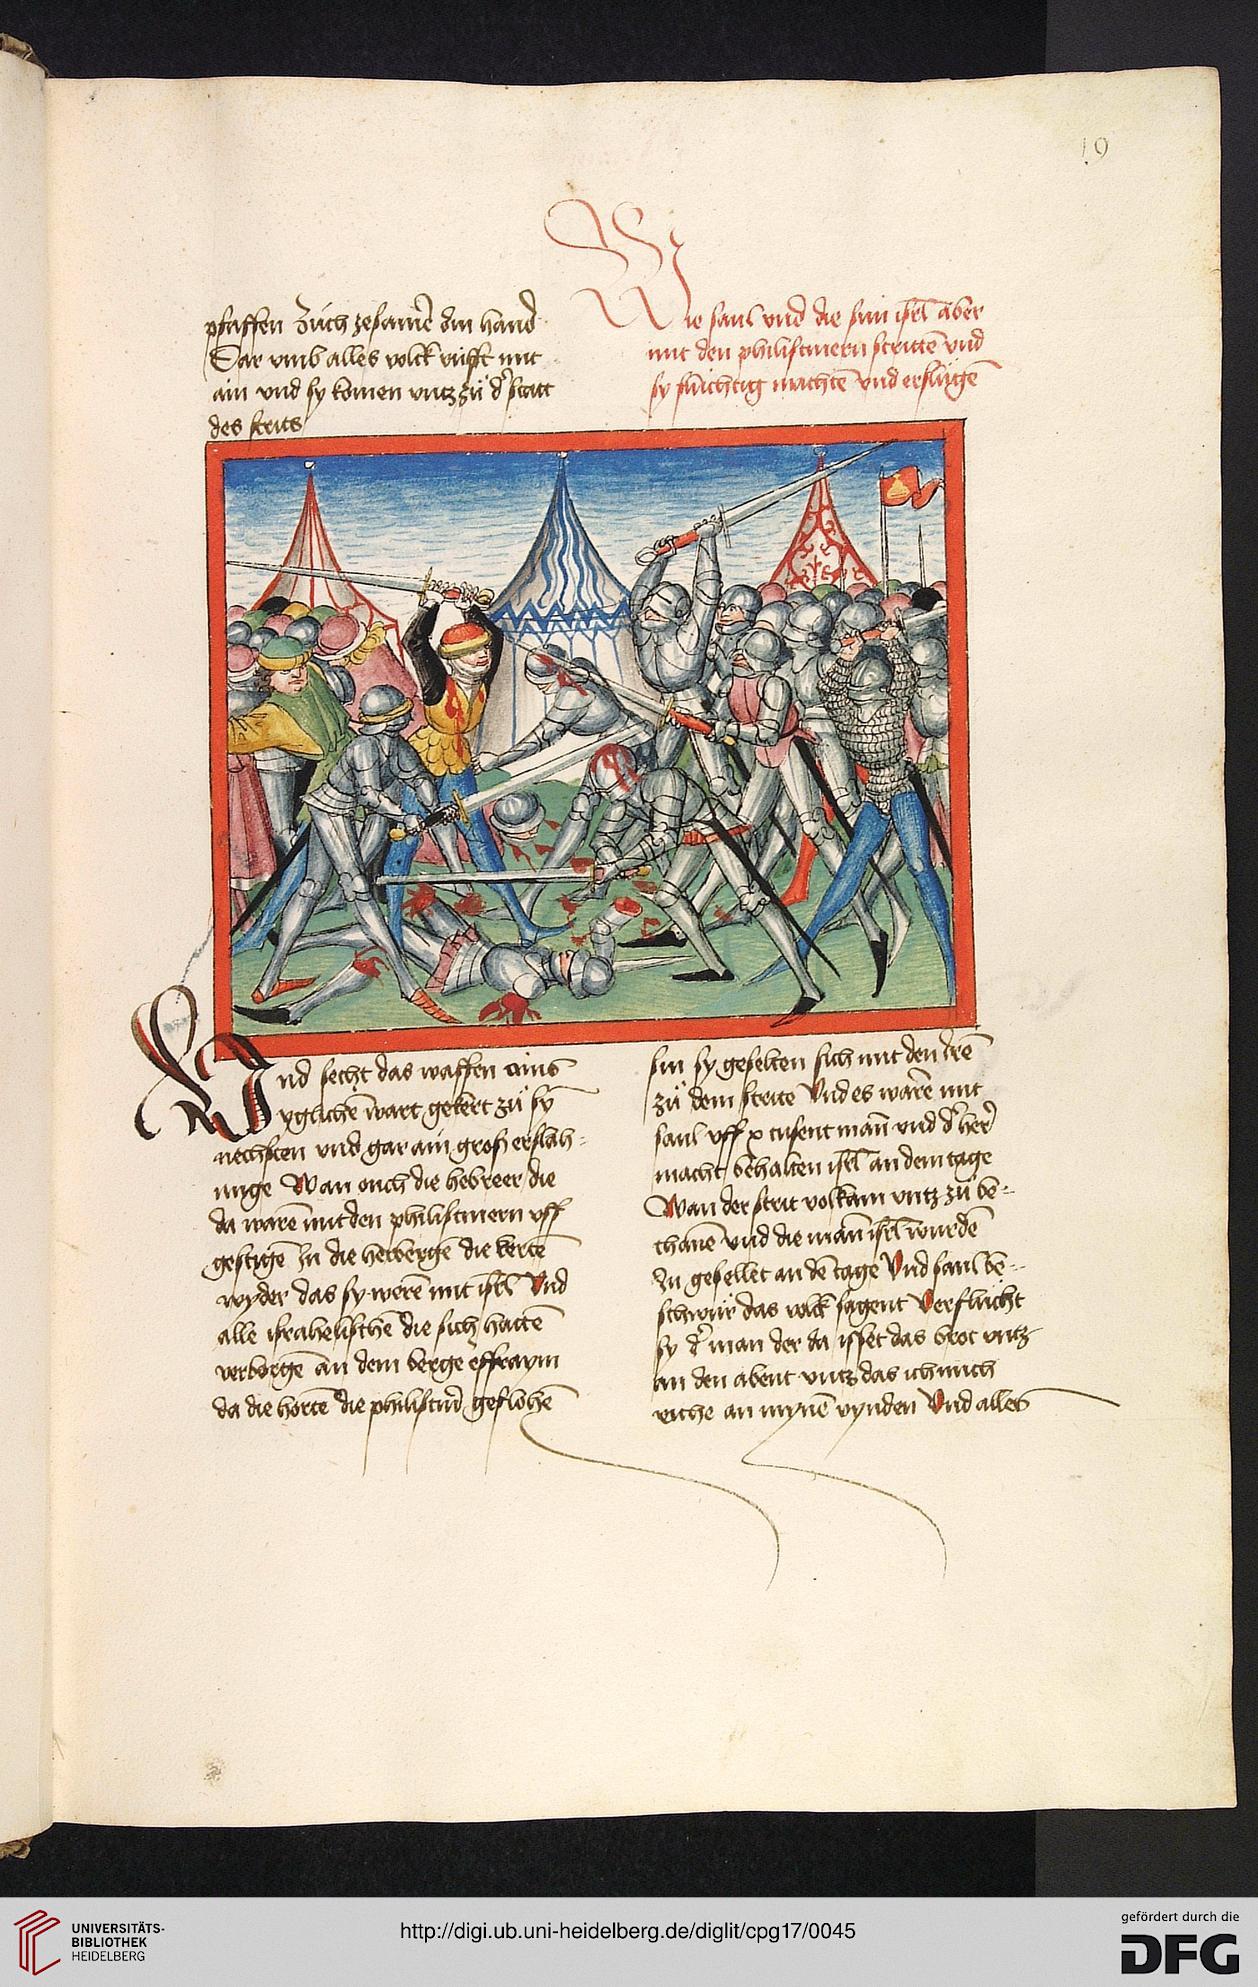 19
pfaffen Züch zesamē din hand
Dar vmb alles volck rüfft mit
ain vnd sy komen vntz zü dˀ statt
des strits
Wie saul vnd die sün isrl̄ aber
mit den philistinern strittē vnd
sy flüchtig machtē vnd erslügē
Und secht das waffen ains
yglichē wart gekert zü sym̄
nechsten vnd gar ain groß erslah-
unge Wan ouch die hebreer die
da warē mit den philistinern vff
gestigē In die herbergē die kertē
wyder das sy werē mit isrl̄ Vnd
alle israhelischē die sich hattē
verborgē an dem berge effraym
da die hortē die philistinˀ geflohē
sin sy geselten sich mit den irē
zü dem strite Vnd es warē mit
saul vff x tusent man̄ vnd dˀ herˀ
macht behalten isrl̄ an dem tage
Wan der strit volkam vntz zü be-
thauē vnd die man̄ isrl̄ wurdē
zu gesellet an dē tage Vnd saul be-
schwür das volck sagent Verflücht
sy dˀ man der da isset das brot vntz
an den abent vntz das ich mich
riche an mynē vynden Vnd alles
UNIVERSITÄTS-
BIBLIOTHEK
HEIDELBERG
http://digi.ub.uni-heidelberg.de/diglit/cpg17/0045
gefördert durch die
DFG